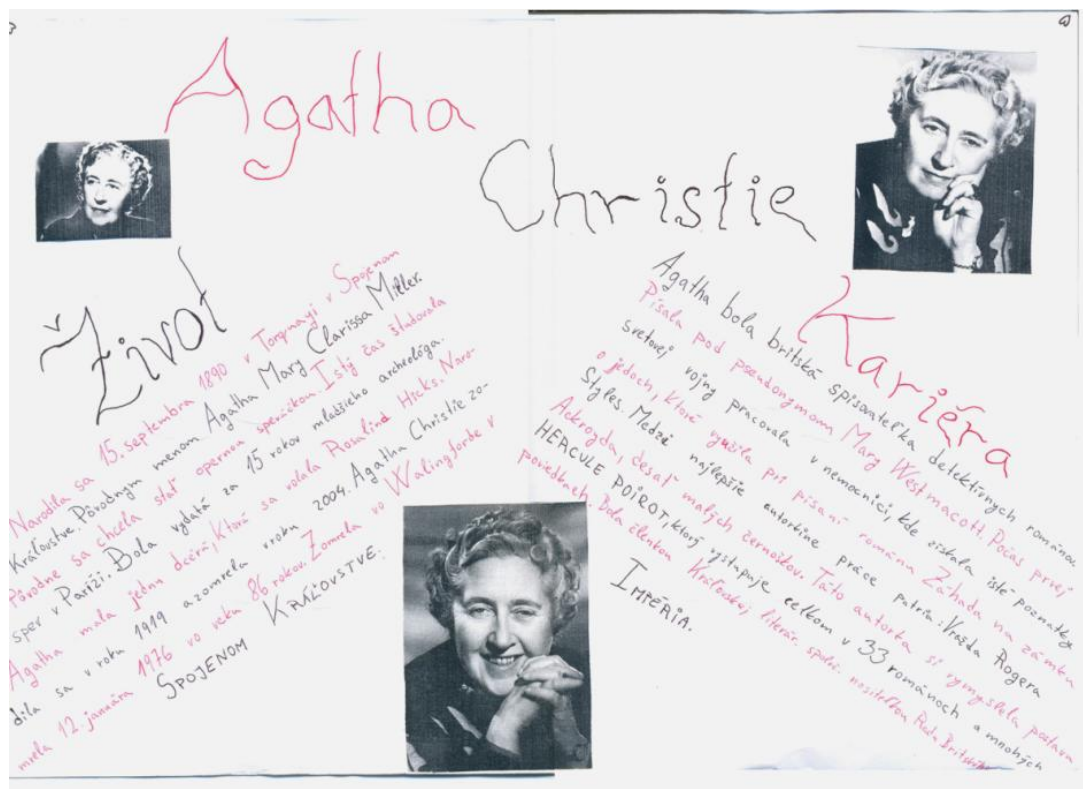 Agatha
Christie
Život
Narodila sa 15. septembra 1890 v Torquayi v Spojenom
Kráľovstve. Pôvodným menom Agatha Mary Clarissa Miller.
Pôvodne sa chcela stať opernou speváčkou. Istý čas študovala
spev v Paríži. Bola vydatá za 15 rokov mladšieho archeológa.
Agatha mala jednu dcéru, ktorá sa volala Rosalind Hicks. Naro-
dila sa v roku 1919 a zomrela v roku 2004. Agatha Christie zo-
mrela 12. januára 1976 vo veku 86 rokov. Zomrela vo Walingforde v
SPOJENOM KRÁĽOVSTVE.
Kariéra
Agatha bola britská spisovateľka detektívnych románov.
Písala pod pseudonymom Mary Westmacott. Počas prvej
svetovej vojny pracovala v nemocnici, kde získala isté poznatky
o jedoch, ktoré využila pri písaní románu Záhada na zámku
Styles. Medzi najlepšie autorkine práce patria: Vražda Rogera
Ackroyda, desať malých černoškov. Táto autorka si vymyslela postavu
HERCULE POIROT, ktorý vystupuje celkom v 33 románoch a mnohých
poviedkach. Bola členkou Kráľovskej literár. spoloč. nositeľkou Radu Britského
IMPÉRIA.